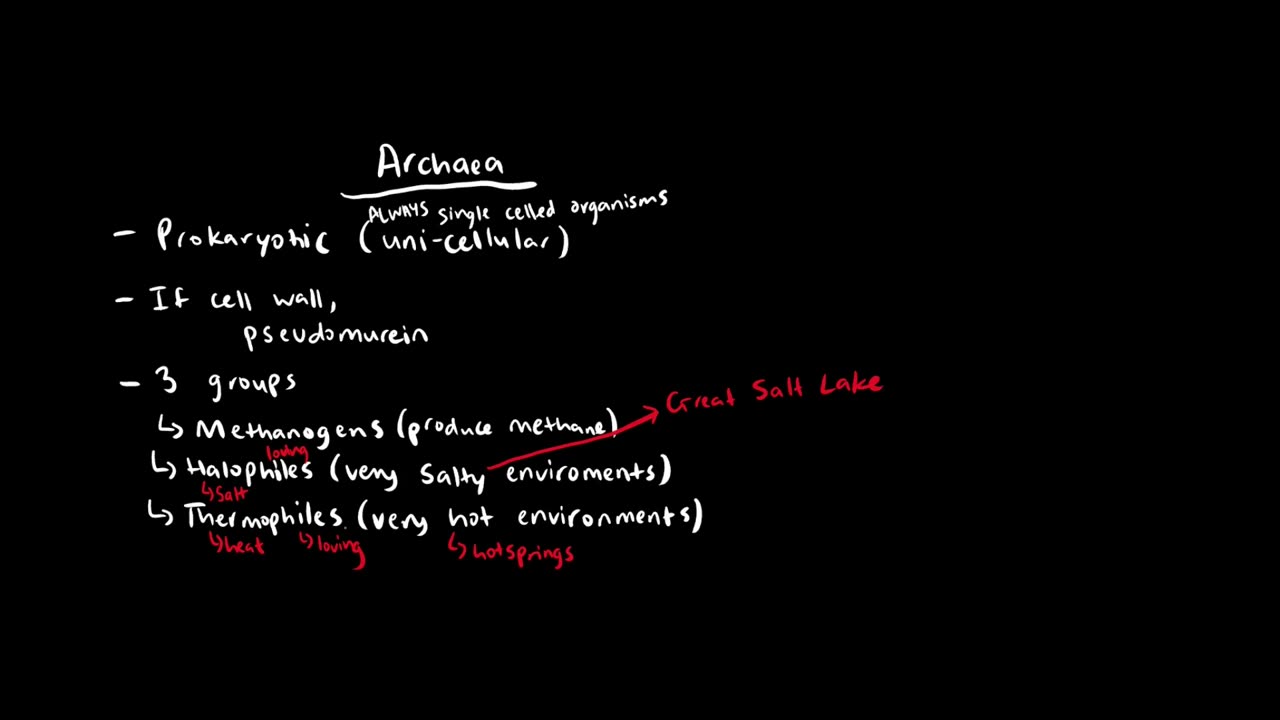 Archaea
ALWAYS single celled organisms
- Prokaryotic (uni-cellular)
- If cell wall,
pseudomurein
- 3 groups
Great Salt Lake
↳ Methanogens (produce methane)
loving
↳ Halophiles (very salty enviroments)
↳ salt
↳ Thermophiles (very hot environments)
↳ heat ↳ loving ↳ hotsprings